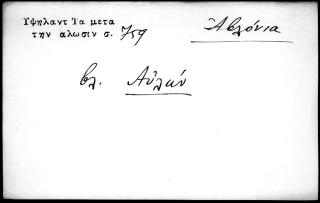 Ὑψηλαντ Τα μετα
την αλωσιν σ. 759
Ἀβλόνια
βλ. Αὐλών